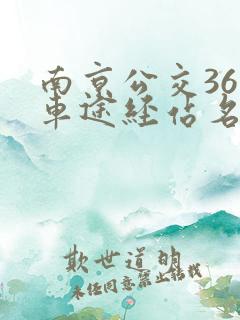 南京公交36
車途经站名
欺世道的
未经同意禁止转载